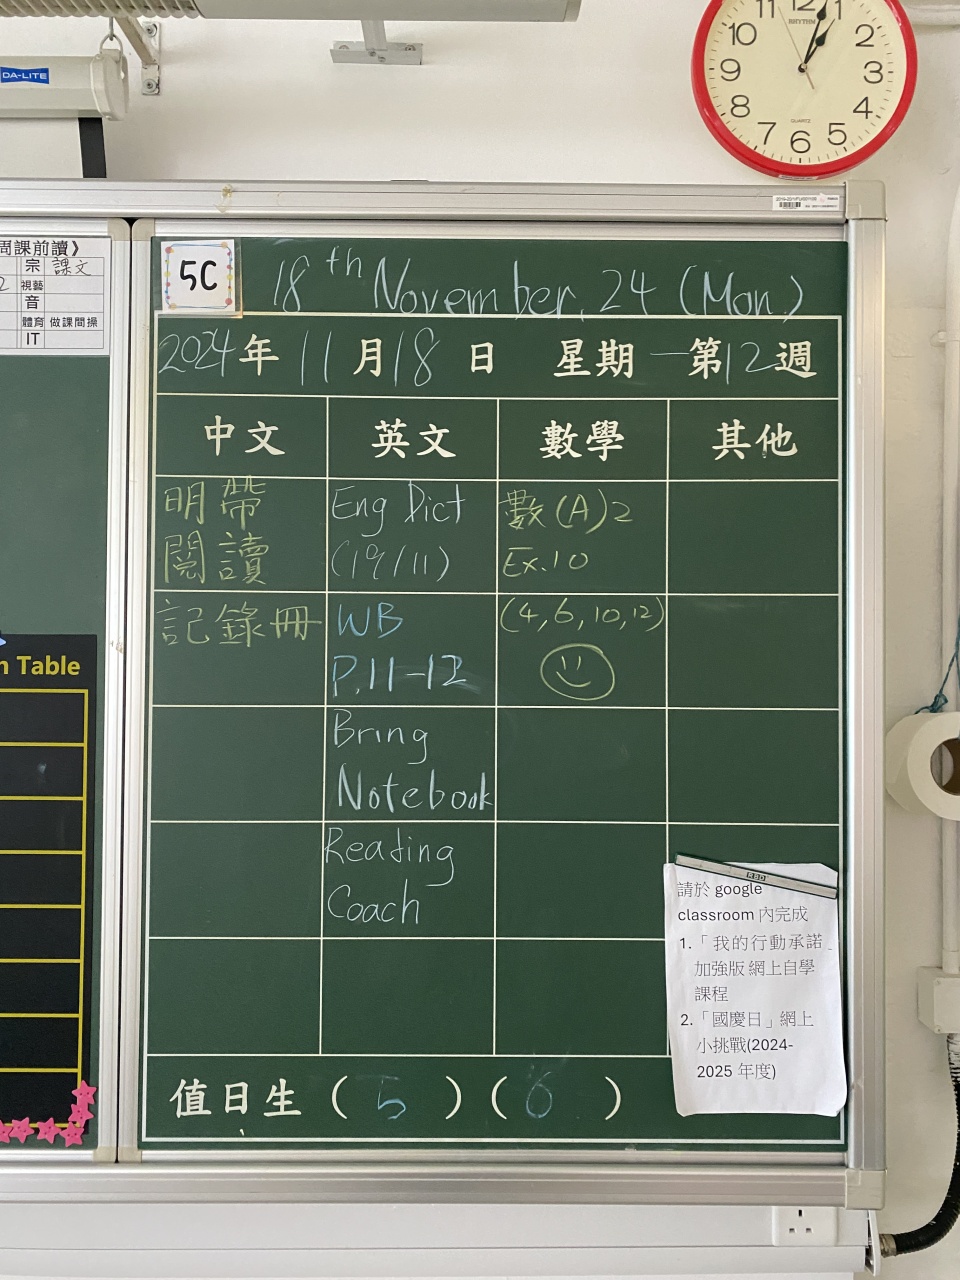 DA-LITE
11 12 1
10 2
9 3
8 4
7 6 5
RHYTHM
QUARTZ
周課前讀》
宗 課文
2 視藝
音
體育 做課間操
IT
5C
18th November, 24 (Mon)
2024年 11月18日 星期一第12週
中文 英文 數學 其他
明帶
閱讀
記錄冊
Eng Dict
(19/11)
WB
P.11-12
Bring
Notebook
Reading
Coach
數(A)2
Ex.10
(4,6,10,12)
n Table
RBD
請於 google
classroom 內完成
1.「我的行動承諾
加強版 網上自學
課程
2.「國慶日」網上
小挑戰(2024-
2025 年度)
值日生 ( 5 ) ( 6 )